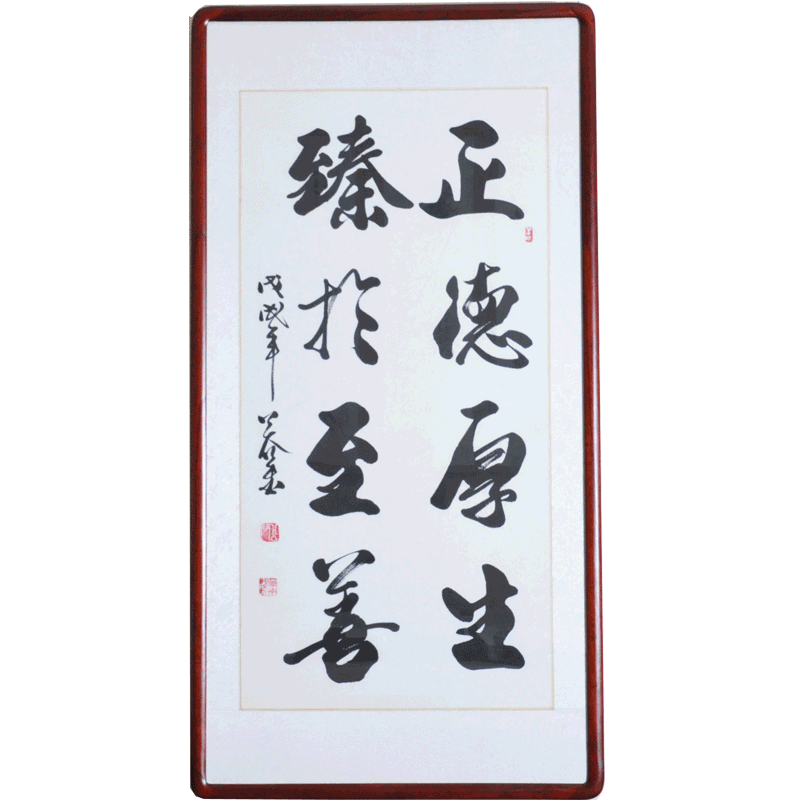 正德厚生
臻於至善
戊戌年